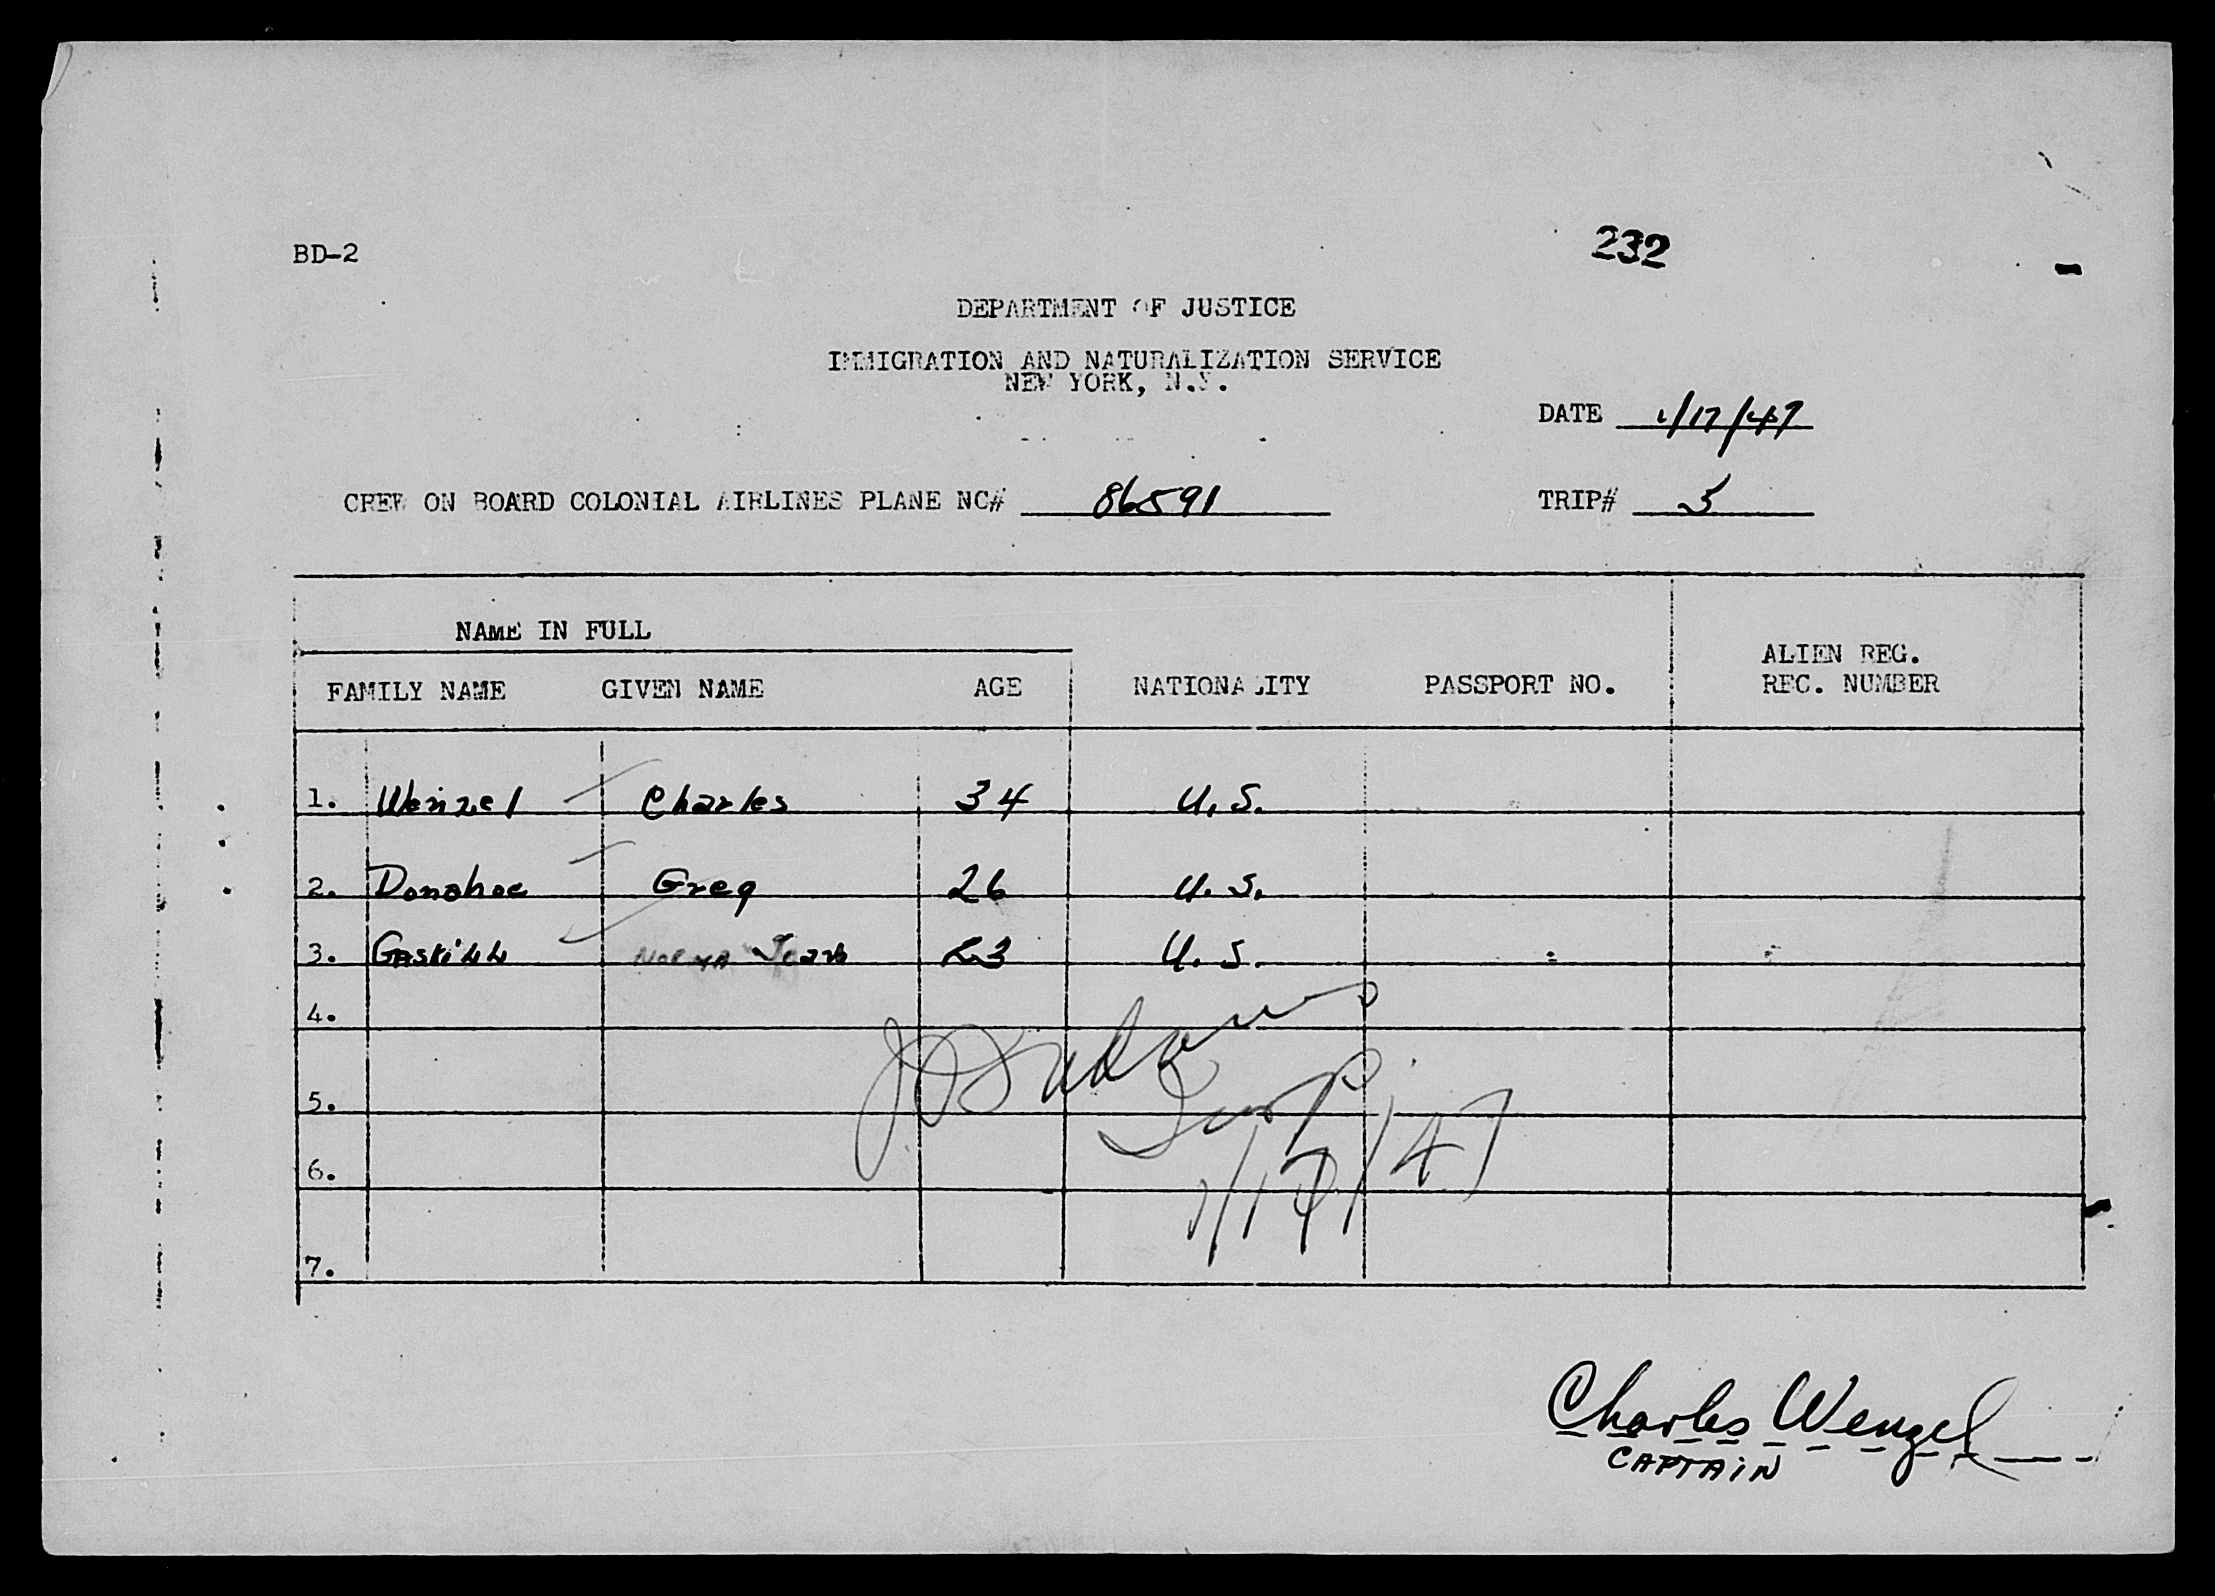 BD-2
232
DEPARTMENT OF JUSTICE
IMMIGRATION AND NATURALIZATION SERVICE
NEW YORK, N.Y.
DATE 1/17/47
CREW ON BOARD COLONIAL AIRLINES PLANE NC# 86591 TRIP# 5
NAME IN FULL
ALIEN REG.
FAMILY NAME GIVEN NAME AGE NATIONALITY PASSPORT NO. REC. NUMBER
1. Wenzel Charles 34 U.S.
2. Donohoe Greg 26 U.S.
3. Gaskill Norma Jean 23 U.S.
4.
5.
6.
1/17/47
7.
Charles Wenzel
CAPTAIN